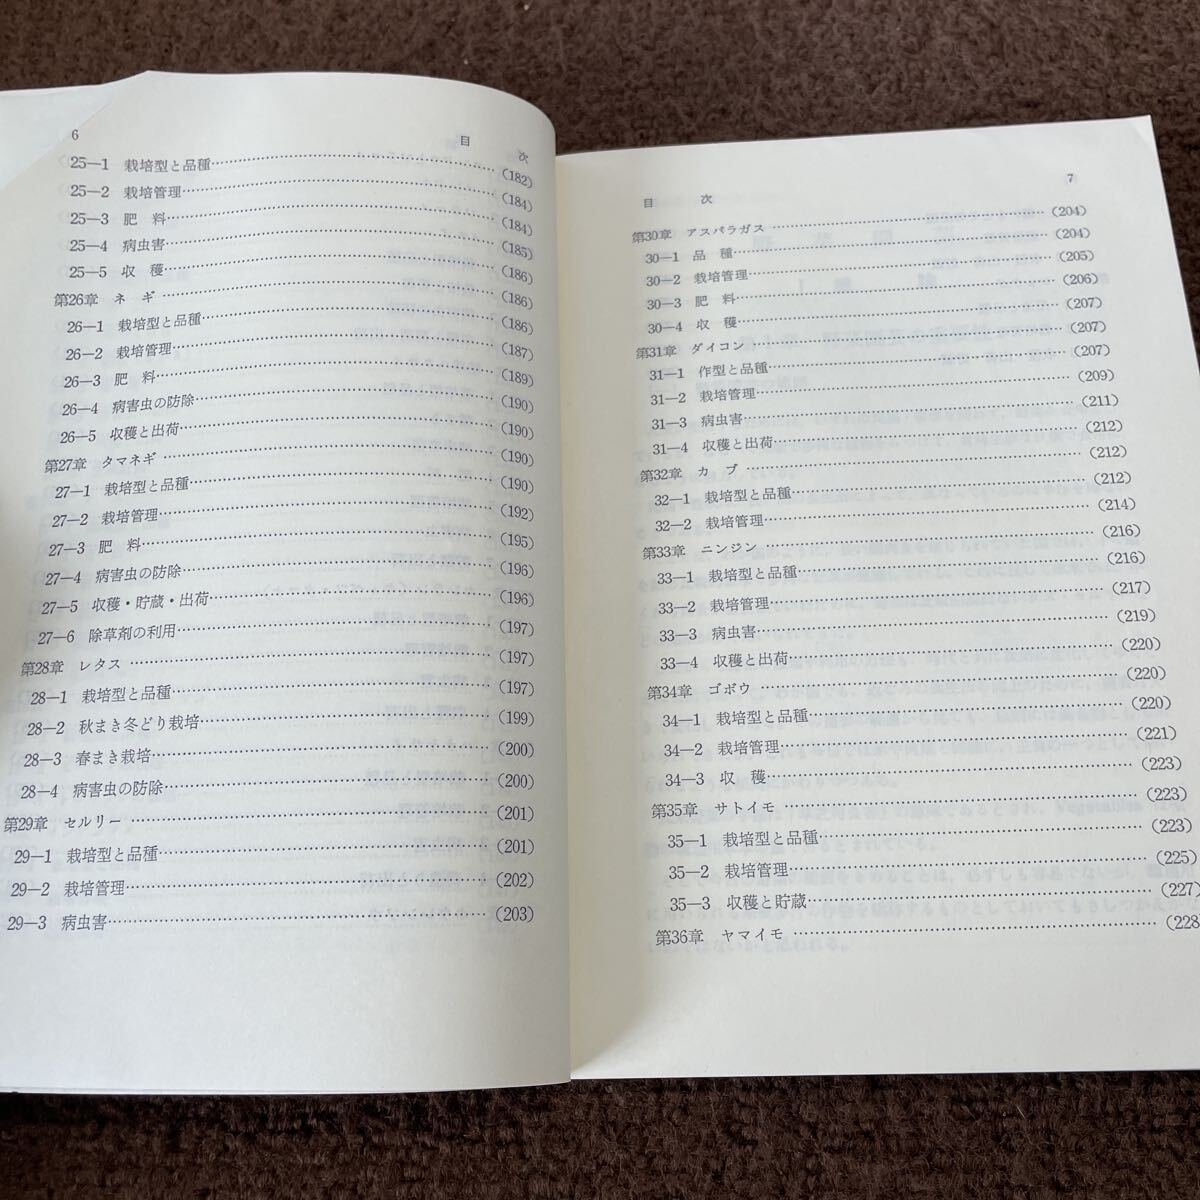 6
目　次
25―1 栽培型と品種……(182)
25―2 栽培管理……(184)
25―3 肥　料……(184)
25―4 病虫害……(185)
25―5 収　穫……(186)
第26章 ネ　ギ……(186)
26―1 栽培型と品種……(186)
26―2 栽培管理……(187)
26―3 肥　料……(189)
26―4 病害虫の防除……(190)
26―5 収穫と出荷……(190)
第27章 タマネギ……(190)
27―1 栽培型と品種……(190)
27―2 栽培管理……(192)
27―3 肥　料……(195)
27―4 病害虫の防除……(196)
27―5 収穫・貯蔵・出荷……(196)
27―6 除草剤の利用……(197)
第28章 レタス……(197)
28―1 栽培型と品種……(197)
28―2 秋まき冬どり栽培……(199)
28―3 春まき栽培……(200)
28―4 病害虫の防除……(200)
第29章 セルリー……(201)
29―1 栽培型と品種……(201)
29―2 栽培管理……(202)
29―3 病虫害……(203)
7
目　次
第30章 アスパラガス……(204)
30―1 品　種……(204)
30―2 栽培管理……(205)
30―3 肥　料……(206)
30―4 収　穫……(207)
第31章 ダイコン……(207)
31―1 作型と品種……(207)
31―2 栽培管理……(209)
31―3 病虫害……(211)
31―4 収穫と出荷……(212)
第32章 カ　ブ……(212)
32―1 栽培型と品種……(212)
32―2 栽培管理……(214)
第33章 ニンジン……(216)
33―1 栽培型と品種……(216)
33―2 栽培管理……(217)
33―3 病虫害……(219)
33―4 収穫と出荷……(220)
第34章 ゴボウ……(220)
34―1 栽培型と品種……(220)
34―2 栽培管理……(221)
34―3 収　穫……(223)
第35章 サトイモ……(223)
35―1 栽培型と品種……(223)
35―2 栽培管理……(225)
35―3 収穫と貯蔵……(227)
第36章 ヤマイモ……(228)